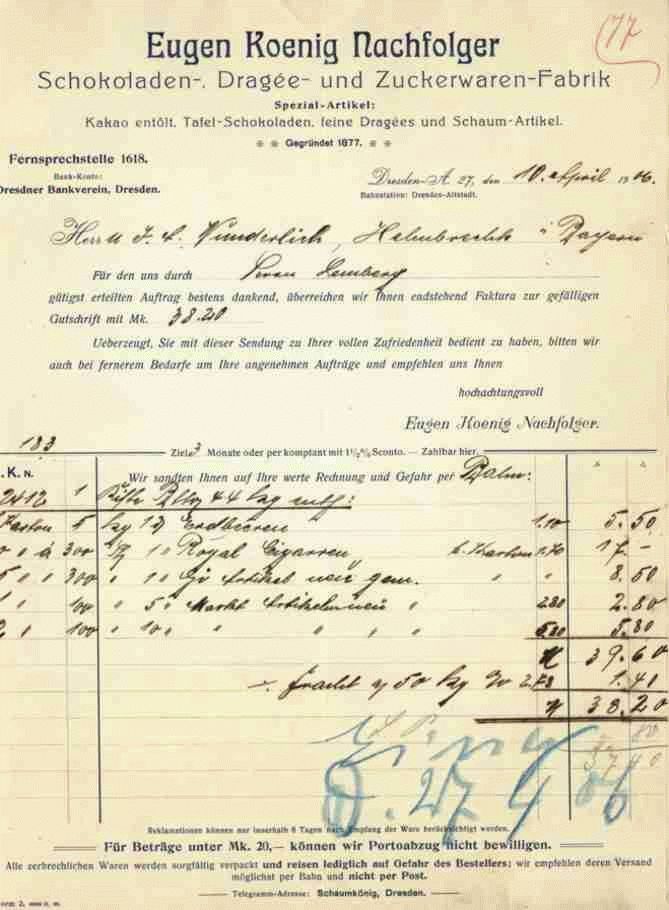 177
Eugen Koenig Nachfolger
Schokoladen-, Dragée- und Zuckerwaren-Fabrik
Spezial-Artikel:
Kakao entölt, Tafel-Schokoladen, feine Dragées und Schaum-Artikel.
Gegründet 1877.
Fernsprechstelle 1618.
Bank-Konto:
Dresdner Bankverein, Dresden.
Dresden-A. 27, den 10. April 1906.
Bahnstation: Dresden-Altstadt.
Herrn J. C. Wunderlich, Helmbrechts i/ Bayern
Für den uns durch Herrn Lemberg
gütigst erteilten Auftrag bestens dankend, überreichen wir Ihnen endstehend Faktura zur gefälligen
Gutschrift mit Mk. 38.20
Ueberzeugt, Sie mit dieser Sendung zu Ihrer vollen Zufriedenheit bedient zu haben, bitten wir
auch bei fernerem Bedarfe um Ihre angenehmen Aufträge und empfehlen uns Ihnen
hochachtungsvoll
Eugen Koenig Nachfolger.
183
Ziel 3 Monate oder per komptant mit 1½% Sconto. — Zahlbar hier.
K. N. Wir sandten Ihnen auf Ihre werte Rechnung und Gefahr per Bahn:
2412 1 Kiste 44 kg
Karton 5 kg Erdbeeren 1.10 5.50
à 300 Royal Cigarren Karton 1.70 17.-
300 Artikel neu gem. 8.50
100 " 5 " Markt Artikel neu " 2.80 2.80
100 " 10 " " " " " 5.80 5.80
M 39.60
Fracht 50 kg 1.40
M 38.20
80
37 40
27 4 06
Reklamationen können nur innerhalb 8 Tagen nach Empfang der Ware berücksichtigt werden.
Für Beträge unter Mk. 20,— können wir Portoabzug nicht bewilligen.
Alle zerbrechlichen Waren werden sorgfältig verpackt und reisen lediglich auf Gefahr des Bestellers; wir empfehlen deren Versand
möglichst per Bahn und nicht per Post.
Telegramm-Adresse: Schaumkönig, Dresden.